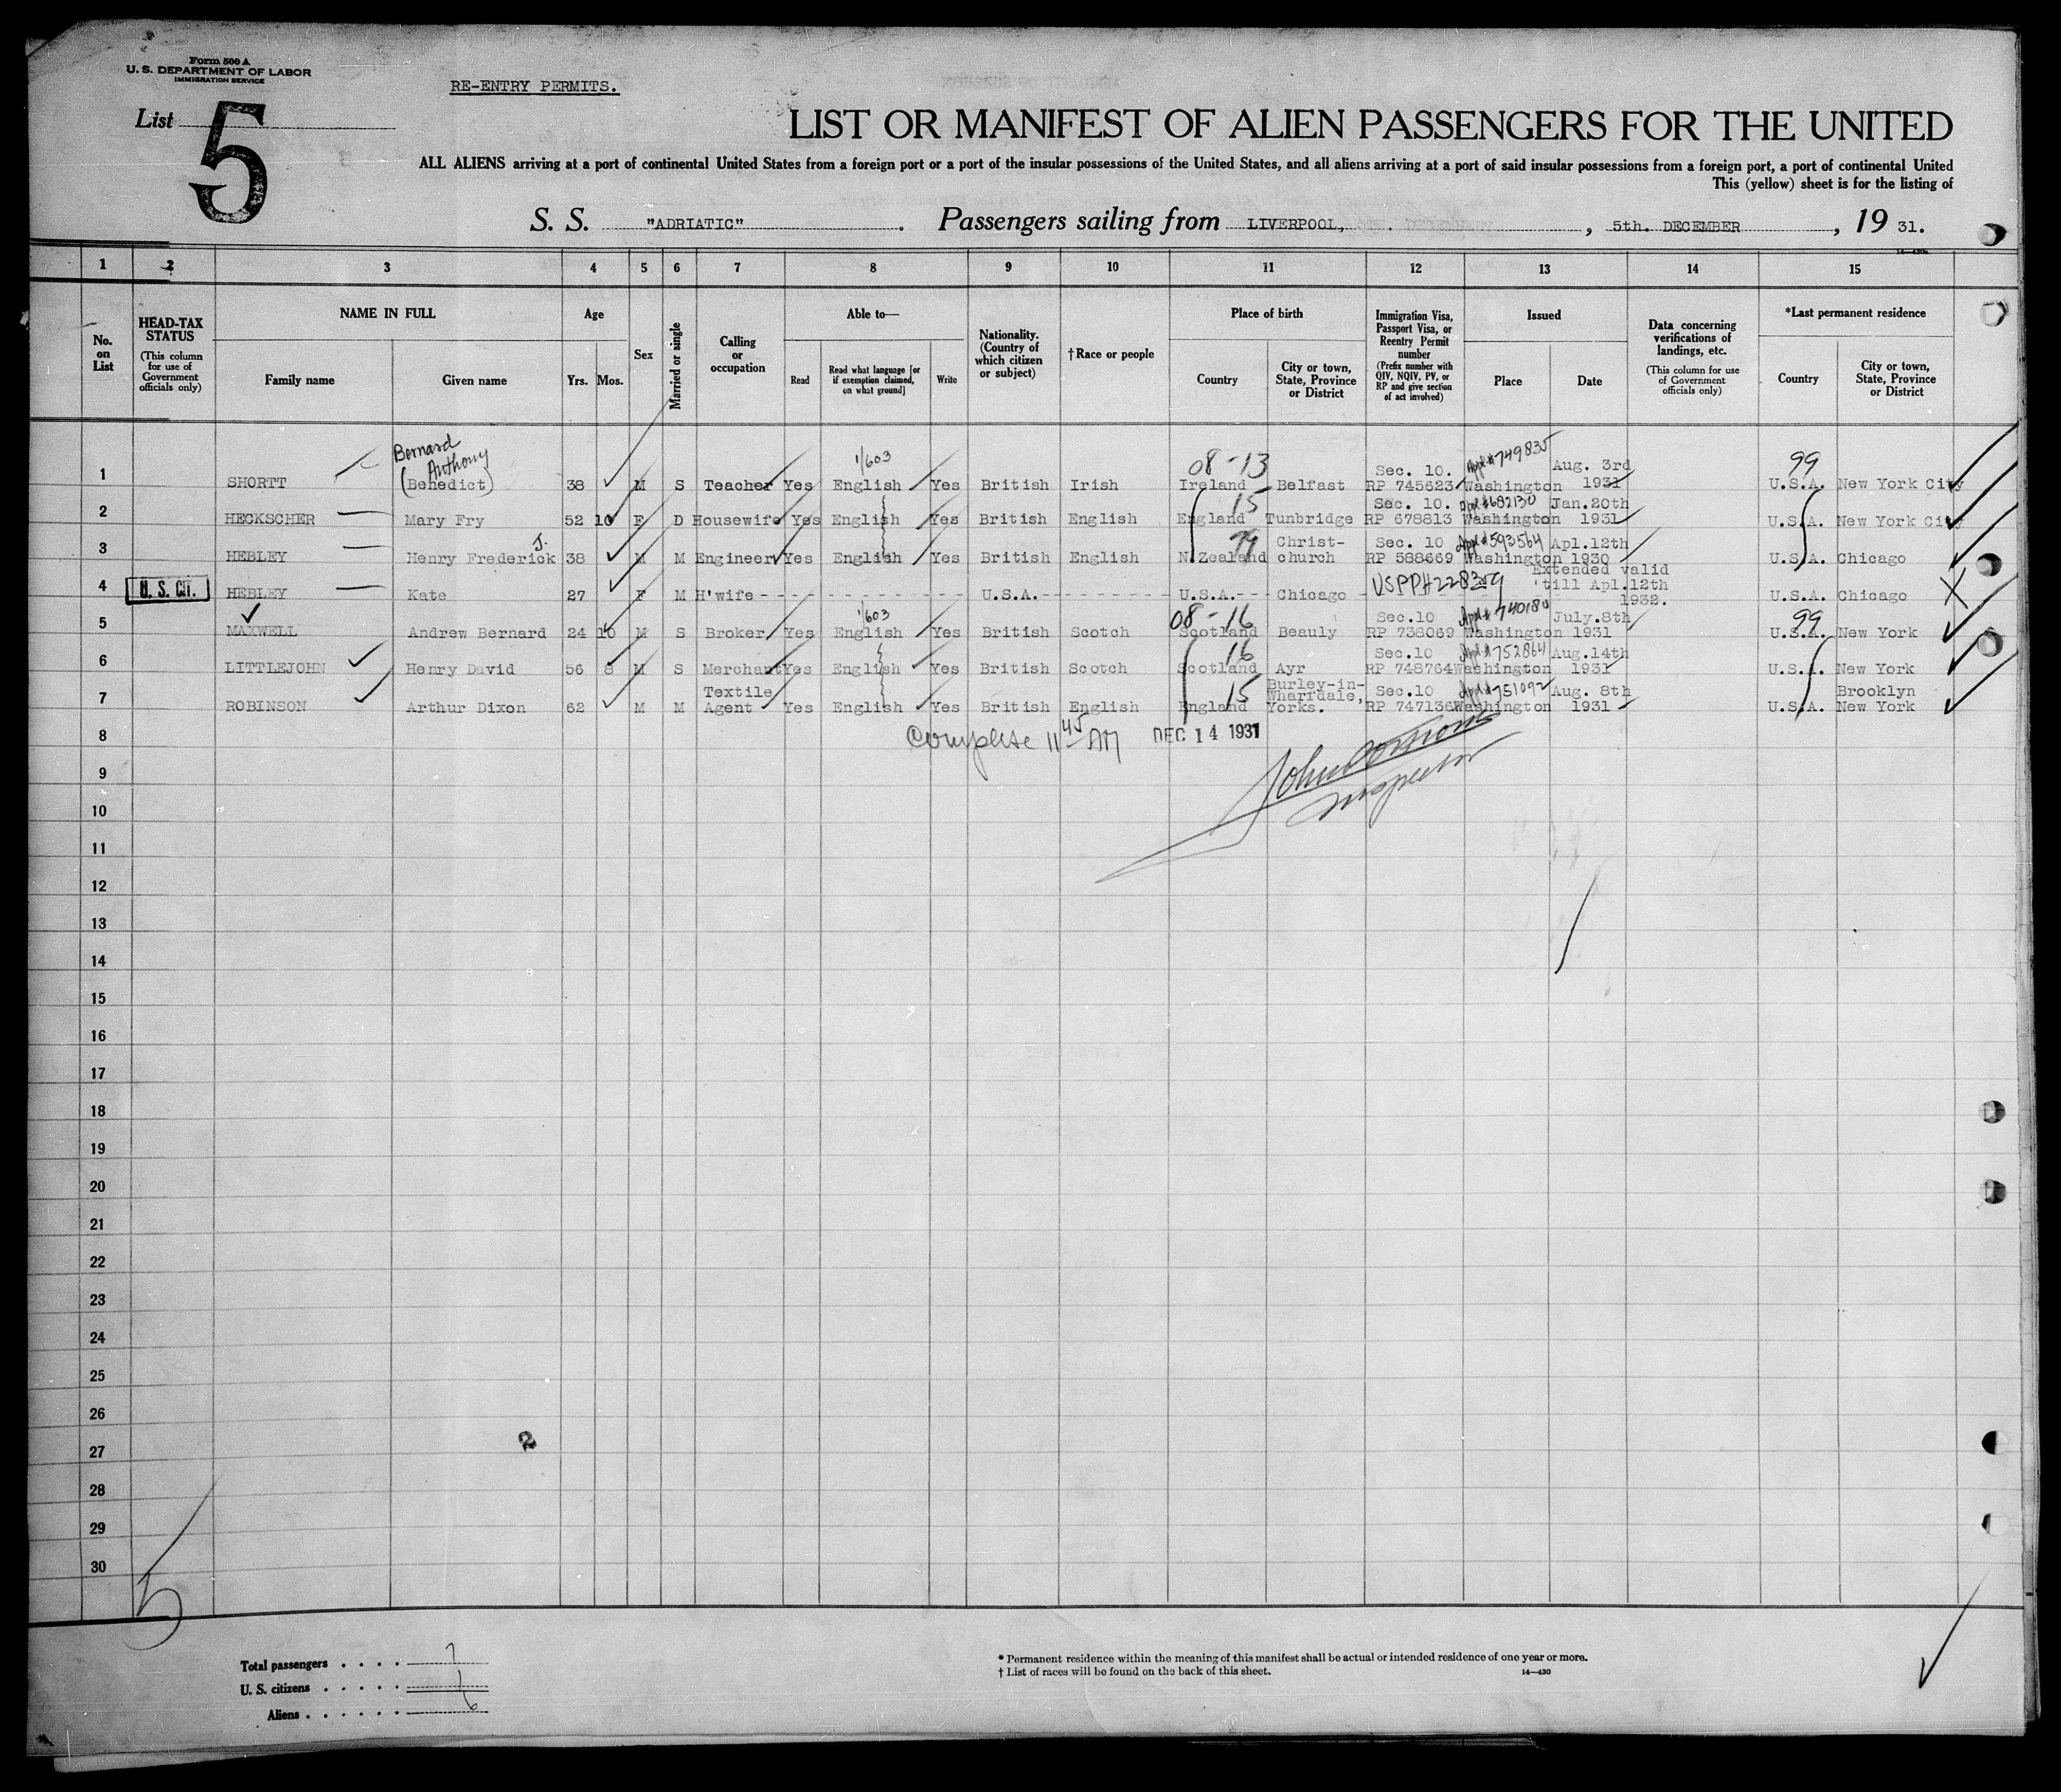 Form 500 A
U. S. DEPARTMENT OF LABOR
IMMIGRATION SERVICE
RE-ENTRY PERMITS.
List 5
LIST OR MANIFEST OF ALIEN PASSENGERS FOR THE UNITED
ALL ALIENS arriving at a port of continental United States from a foreign port or a port of the insular possessions of the United States, and all aliens arriving at a port of said insular possessions from a foreign port, a port of continental United
This (yellow) sheet is for the listing of
S. S. "ADRIATIC" . Passengers sailing from LIVERPOOL, , 5th. DECEMBER , 19 31.
1 2 3 4 5 6 7 8 9 10 11 12 13 14 15
No. on List
HEAD-TAX STATUS (This column for use of Government officials only)
NAME IN FULL Family name Given name
Age Yrs. Mos.
Sex
Married or single
Calling or occupation
Able to— Read Read what language [or if exemption claimed, on what ground] Write
Nationality. (Country of which citizen or subject)
†Race or people
Place of birth Country City or town, State, Province or District
Immigration Visa, Passport Visa, or Reentry Permit number (Prefix number with QIV, NQIV, PV, or RP and give section of act involved)
Issued Place Date
Data concerning verifications of landings, etc. (This column for use of Government officials only)
*Last permanent residence Country City or town, State, Province or District
Bernard Anthony 1/603 08-13 Sec. 10. Appl # 749835 Aug. 3rd 99
1 SHORTT (Benedict) 38 M S Teacher Yes English Yes British Irish Ireland Belfast RP 745623 Washington 1931 U.S.A. New York City
15 Sec. 10. Appl # 682130 Jan.20th
2 HECKSCHER Mary Fry 52 10 F D Housewife Yes English Yes British English England Tunbridge RP 678813 Washington 1931 U.S.A. New York City
J. 79 Christ- Sec. 10 Appl # 593564 Apl.12th
3 HEBLEY Henry Frederick 38 M M Engineer Yes English Yes British English N.Zealand church RP 588669 Washington 1930 U.S.A. Chicago
Extended valid
U. S. CIT. USPP# 228359 'till Apl.12th
4 HEBLEY Kate 27 F M H'wife - - - - - - - - - - - U.S.A. - - - - - - - - - U.S.A. - - - Chicago - 1932. U.S.A. Chicago
1/603 08-16 Sec.10 Appl # 740180 July.8th 99
5 MAXWELL Andrew Bernard 24 10 M S Broker Yes English Yes British Scotch Scotland Beauly RP 738069 Washington 1931 U.S.A. New York
16 Sec.10 Appl # 752864 Aug.14th
6 LITTLEJOHN Henry David 56 8 M S Merchant Yes English Yes British Scotch Scotland Ayr RP 748764 Washington 1931 U.S.A. New York
Textile 15 Burley-in-Wharfdale, Sec.10 Appl # 751092 Aug. 8th Brooklyn
7 ROBINSON Arthur Dixon 62 M M Agent Yes English Yes British English England Yorks. RP 747136 Washington 1931 U.S.A. New York
8 Complete 11 45 AM DEC 14 1931
9
Inspector
10
11
12
13
14
15
16
17
18
19
20
21
22
23
24
25
26
27 2
28
29
30
5
Total passengers . . . . 7
U. S. citizens . . . . . 1
Aliens . . . . . . 6
* Permanent residence within the meaning of this manifest shall be actual or intended residence of one year or more.
† List of races will be found on the back of this sheet. 14—430